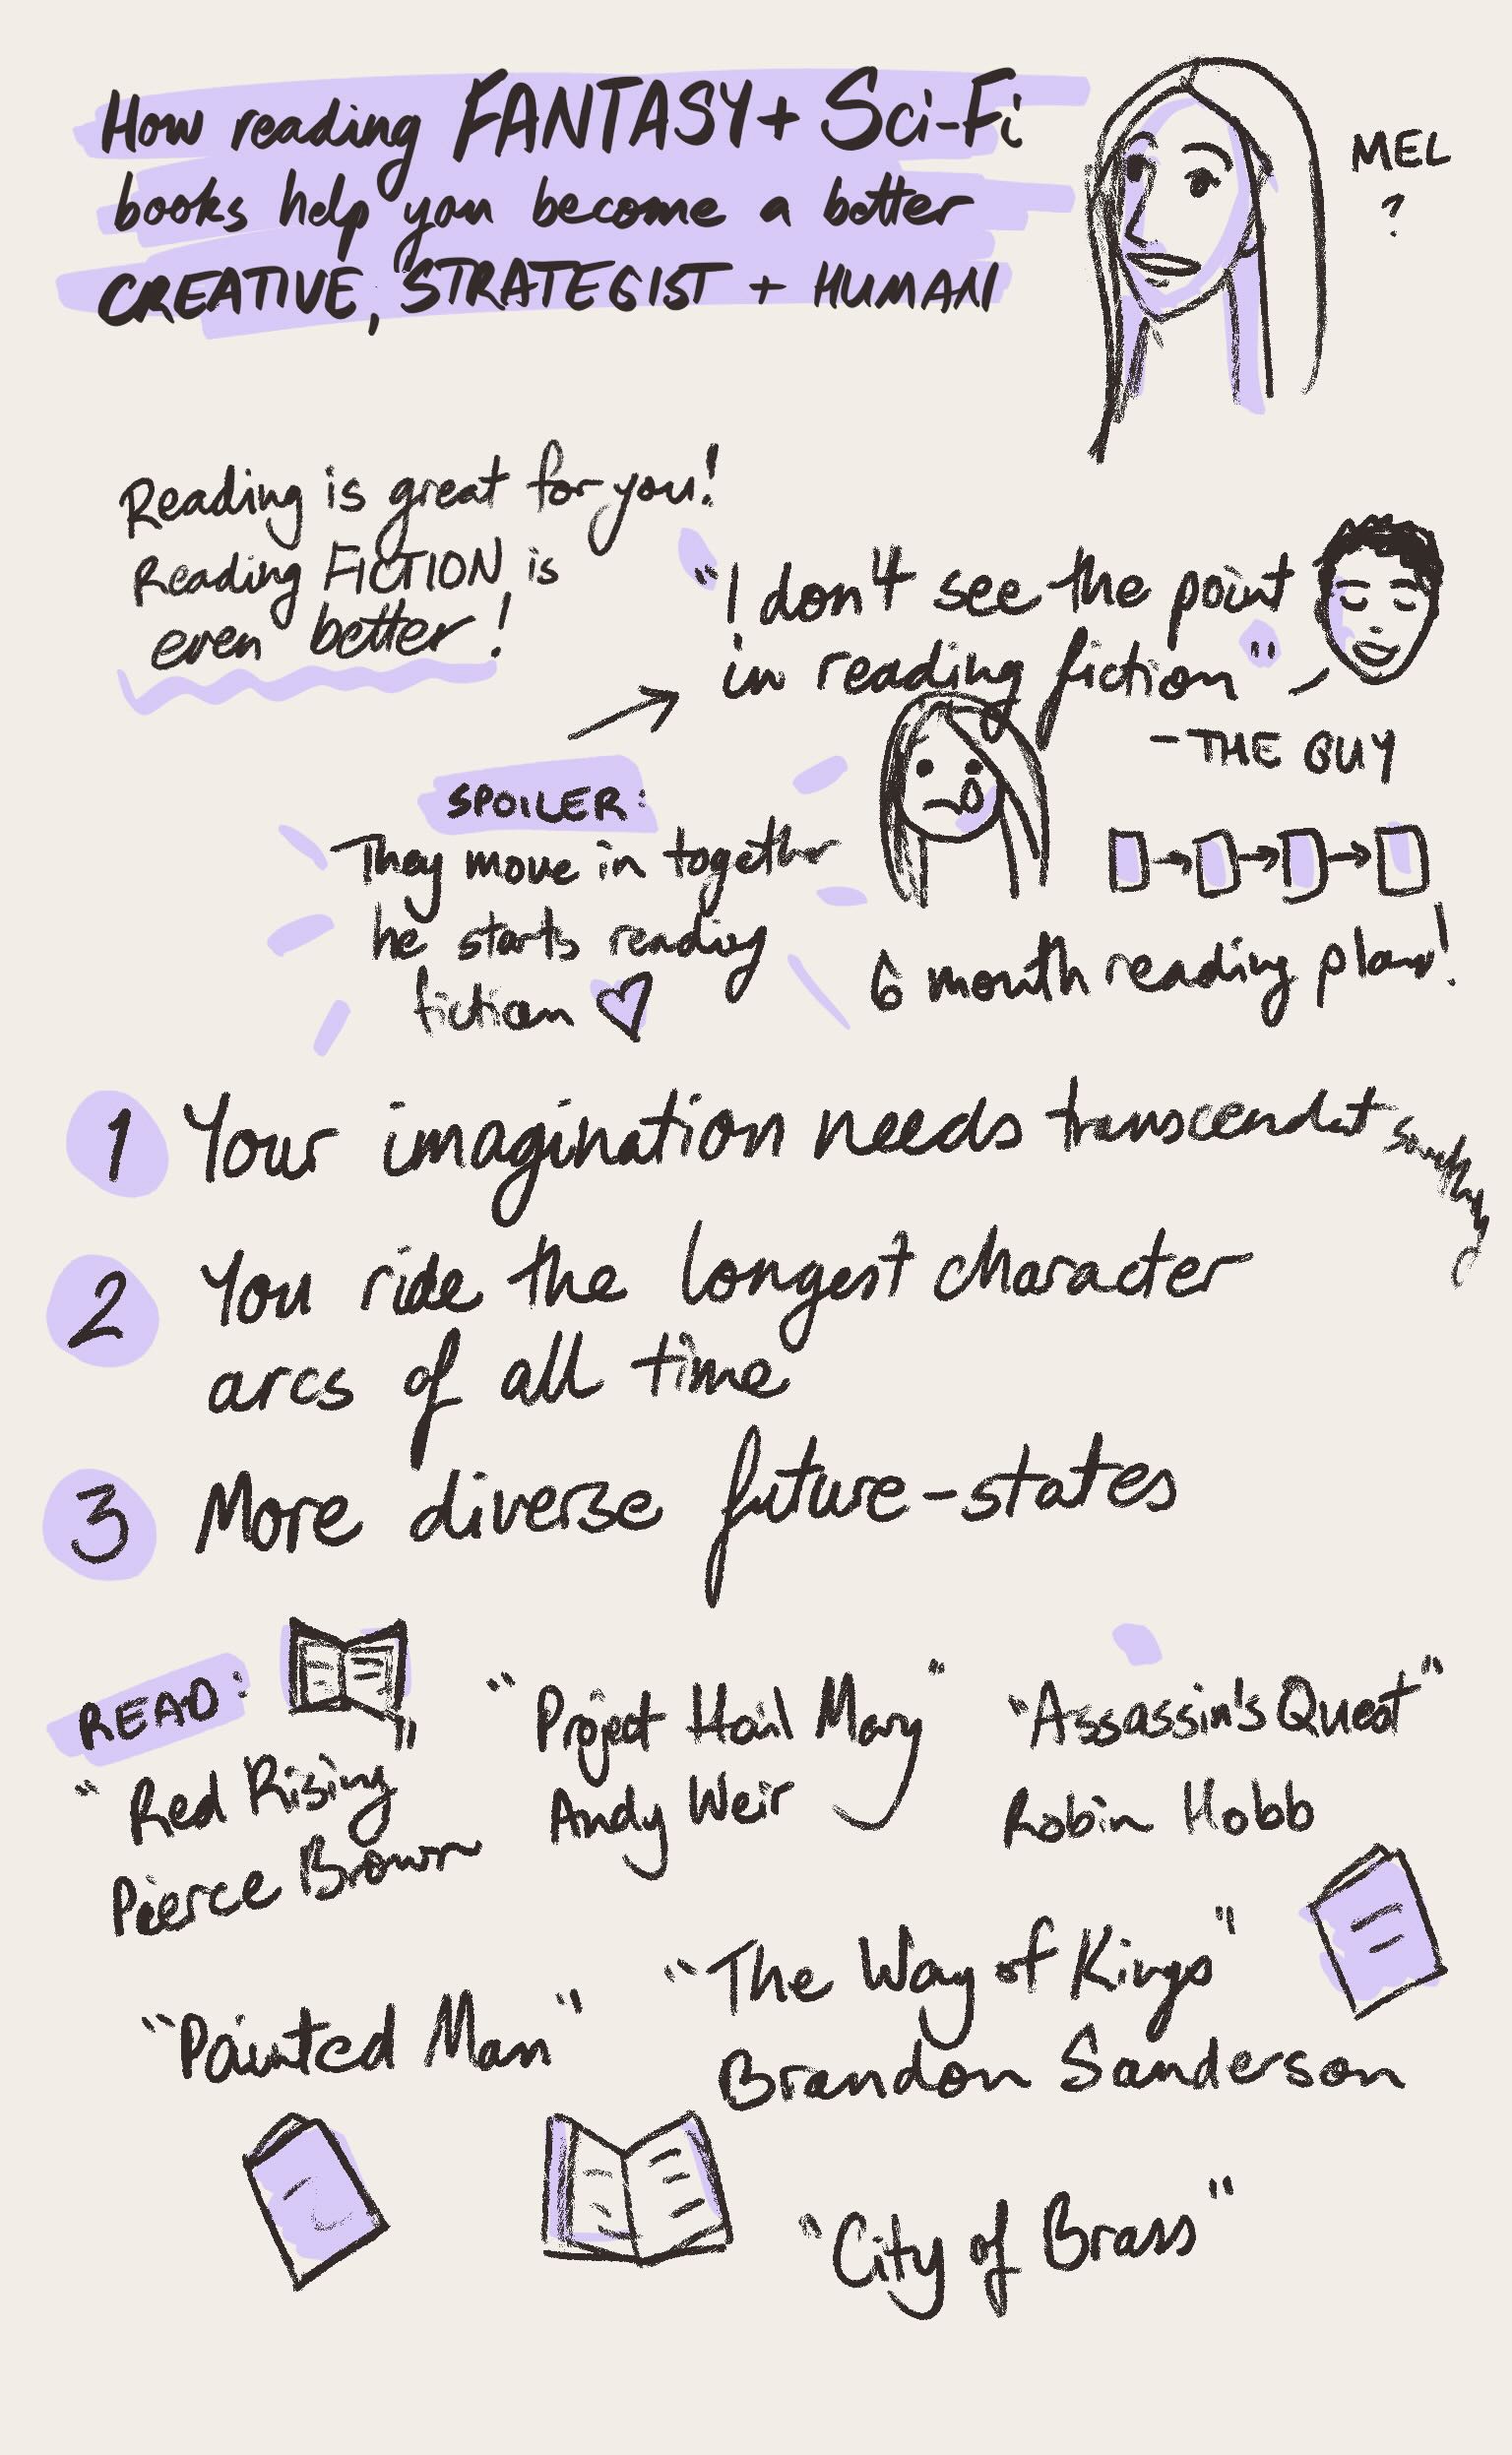 How reading FANTASY + Sci-Fi
books help you become a better
CREATIVE, STRATEGIST + HUMAN
MEL
?
Reading is great for you!
Reading FICTION is
even better!
"I don't see the point
in reading fiction"
- THE GUY
SPOILER:
They move in together
he starts reading
fiction
6 month reading plan!
1 Your imagination needs transcendat
2 You ride the longest character
arcs of all time
3 More diverse future-states
READ:
"Red Rising"
Pierce Brown
"Project Hail Mary"
Andy Weir
"Assassin's Quest"
Robin Hobb
"Painted Man"
"The Way of Kings"
Brandon Sanderson
"City of Brass"